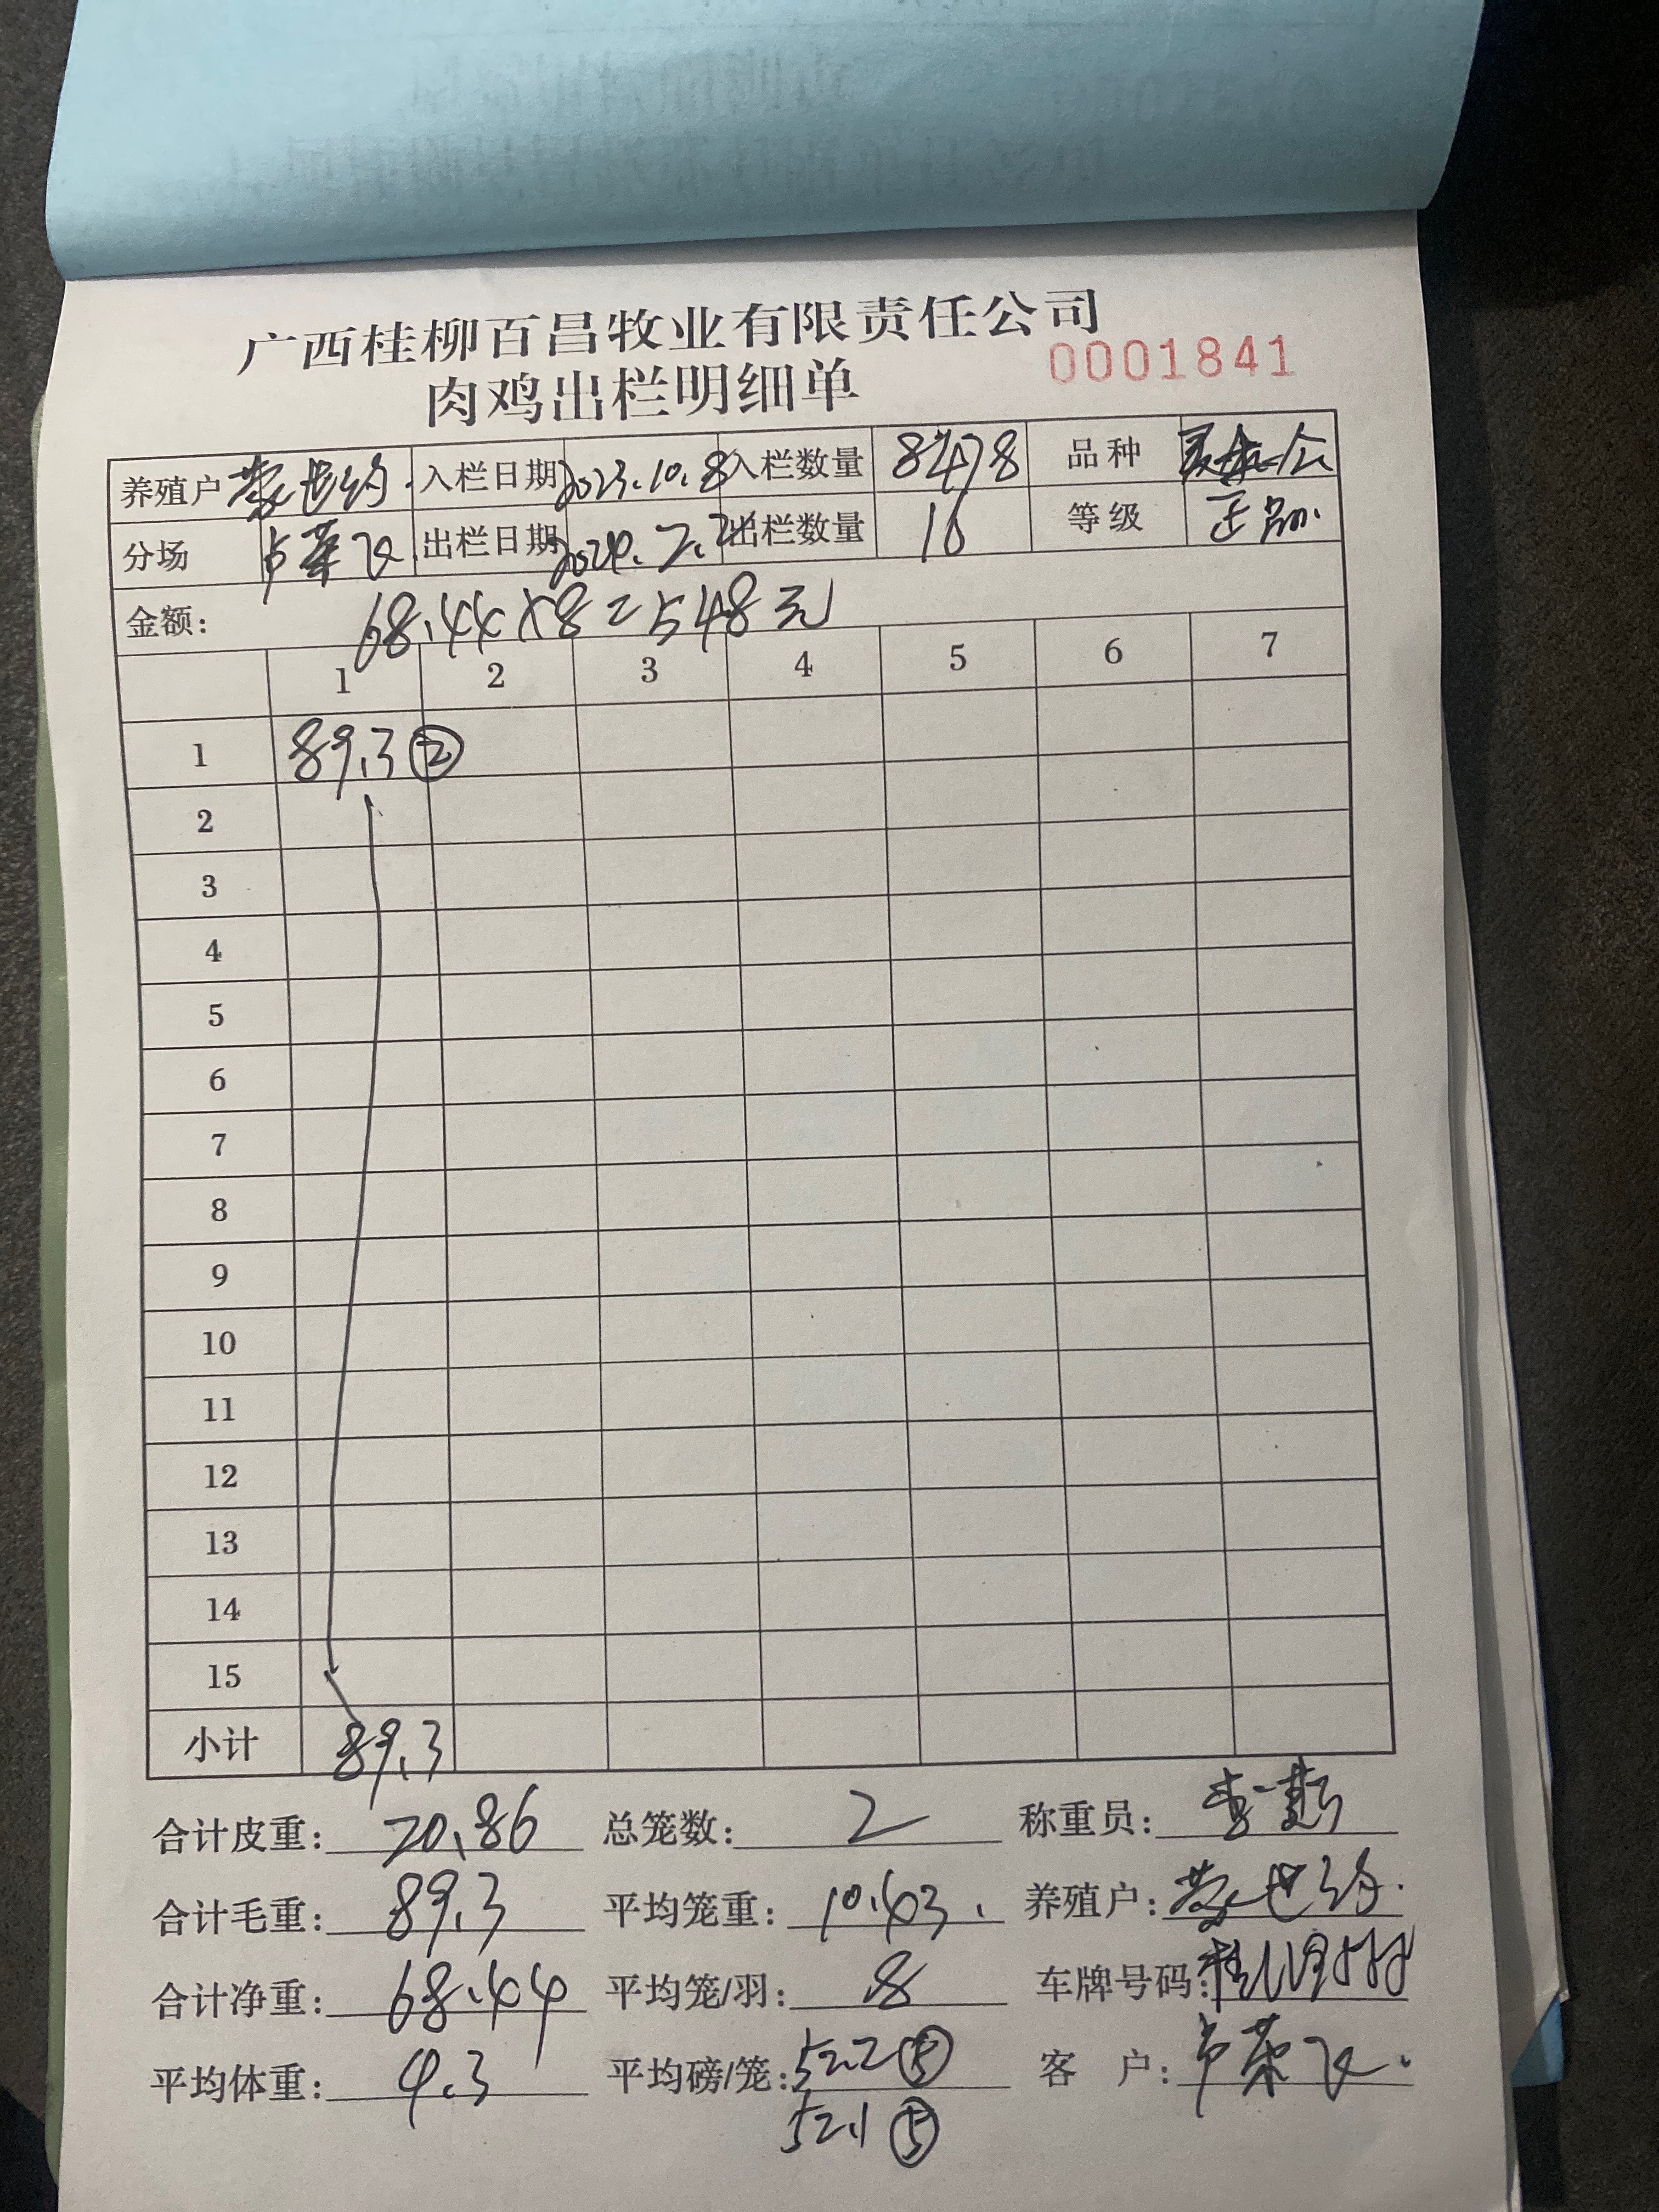 广西桂柳百昌牧业有限责任公司
肉鸡出栏明细单 0001841
养殖户 入栏日期 2023.10.8 入栏数量 8478 品种
分场 卢荣飞 出栏日期 2024.2.2 出栏数量 16 等级 正品
金额: 68.44×8=548元
1 2 3 4 5 6 7
1 89.3 ②
2
3
4
5
6
7
8
9
10
11
12
13
14
15
小计 89.3
合计皮重: 20.86 总笼数: 2 称重员:
合计毛重: 89.3 平均笼重: 10.43. 养殖户:
合计净重: 68.44 平均笼/羽: 8 车牌号码:
平均体重: 4.3 平均磅/笼: 52.2 ⑤ 客户: 卢荣飞.
52.1 ⑤